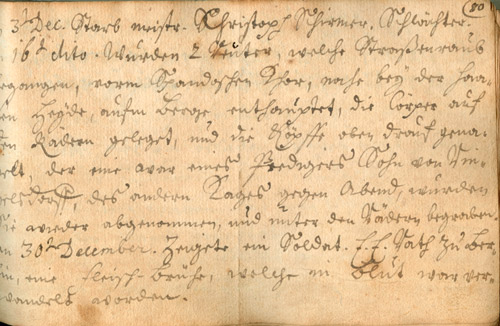 80
3t Dec. Starb meistr. Christoph Schirmer. Schlächter.
16t dito. Wurden 2 Reuter, welche Straßenraub
egangen, vorm Spandoschen Thor, nahe bey der Haa,
en Heyde, aufm Berge enthauptet, die Cörper auf
en Rädern geleget, und die Köpffe oben drauf gena-
elt, der eine war eines Predigers Sohn von
des andern Tages gegen Abend, wurden
ie wieder abgenommen, und unter den Rädern begraben.
en 30t December. Zeigete ein Soldat. E. E. Rath zu Ber-
in, eine fleisch-brühe, welche in blut war ver-
wandelt worden.